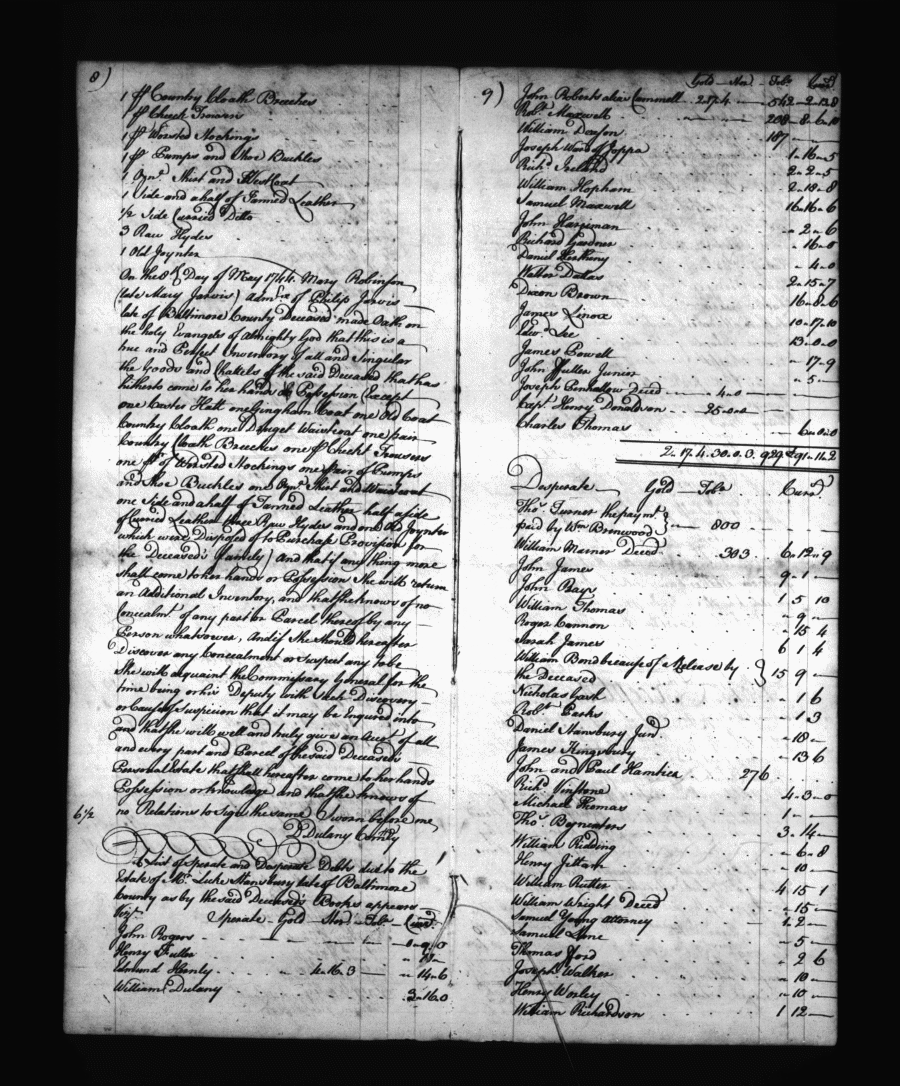 8)
1 pr Country Cloath Breeches
1 pr Check Trousers
1 pr Worsted Stockings
1 pr Pumps and Shoe Buckles
1 Ozn.g Shirt and West Coat
1 Side and a half of Tanned Leather
1/2 Side Curried Ditto
3 Raw Hydes
1 Old Joynter
On the 8th Day of May 1744 Mary Robinson
(late Mary Jarvis) Adm.x of Philip Jarvis
late of Baltimore County Deceased made Oath on
the holy Evangels of Almighty God that this is a
true and Perfect Inventory of all and Singular
the Goods and Chatels of the said Deceased that has
hitherto come to her hands or Possession (Except
one Castor Hatt one Gingham Coat one Old Coat
Country Cloath one Druget Waistcoat one pair
Country Cloath Breeches one pr Check Trousers
one pr of Worsted Stockings one pair of Pumps
and Shoe Buckles one Ozn.g Shirt and Waistcoat
one Side and a half of Tanned Leather half a side
of Curried Leather three Raw Hydes and one Old Joynter
which were Disposed of to Purchase Provision for
the Deceased's family) And that if any thing more
shall come to her hands or Possession She will return
an Additional Inventory, and that she knows of no
Concealmt. of any part or Parcel thereof by any
Person whatsoever, And if She should hereafter
Discover any Concealment or suspect any to be
She will acquaint the Commissary General for the
time being or his Deputy with such Discovery
or Cause of Suspicion that it may be Enquired into
and that she will well and truly give an Acct. of all
and every part and Parcel of the said Deceased's
Personal Estate that shall hereafter come to her hands
Possession or knowledge and that she knows of
6 1/2 no Relations to Sign the same Sworn before me
D Dulany Com.ry
A List of Sperate and Desperate Debts due to the
Estate of Mr. Luke Stansbury late of Baltimore
County as by the said Deceased's Books appears
Vizt.
Sperate - Gold - Ster - Tob. - Curr.t
John Rogers
Henry Fuller
Edmund Hanly 4-16-3 14-6
William Dulany 3-16-0
9)
Gold Ster Tob. Curr.t
John Roberts alias Cammell 2-17-4 542-2-13-8
Rob.t Maxwell 200-8-6-10
William Deason 187
Joseph Ward of Joppa 1-16-5
Rich.d Ireland 2-2-5
William Hopham 2-18-8
Samuel Maxwell 16-16-6
John Harriman 2-6
Richard Gardner 16-0
Daniel 4-0
Walter Dallas 2-15-7
Dixon Brown 16-8-6
James Linox 10-17-10
Edw.d See 13-0-0
James Powell 17-9
John Fuller Junior 5
Joseph Penhallow Deced 4-0
Capt. Henry Donaldson 25-0-0
Charles Thomas 6-0-0
2-17-4 30-0-3 929 £91-11-2
Desperate Gold Tob. Curr.t
Tho.s Turner the paymt.
paid by Wm Brenwood } 800
William Marner Deced 303 6-12-9
John James 9-1-
John Bays 1 5 10
William Thomas 9
Roger Cannon 15 4
Sarah James 6 1 4
William Bond because of a Release by
the deceased } 15 9
Nicholas Gash 1 6
Rob.t Parks 1 3
Daniel Stansbury Jun.r 18
James Kingsbury 13 6
John and Paul 276
Rich.d Pinstone 4-3-0
Michael Thomas 1
Tho.s Boyneaters 3-14
William Ridding 6-8
Henry Jettam 10
William Rutter 4 15 1
William Wright Deced 15
Samuel Young attorney 1-2
Samuel 5
Thomas Ford 2 6
Joseph Walker 10
Henry Worley 10
William Richardson 1 12